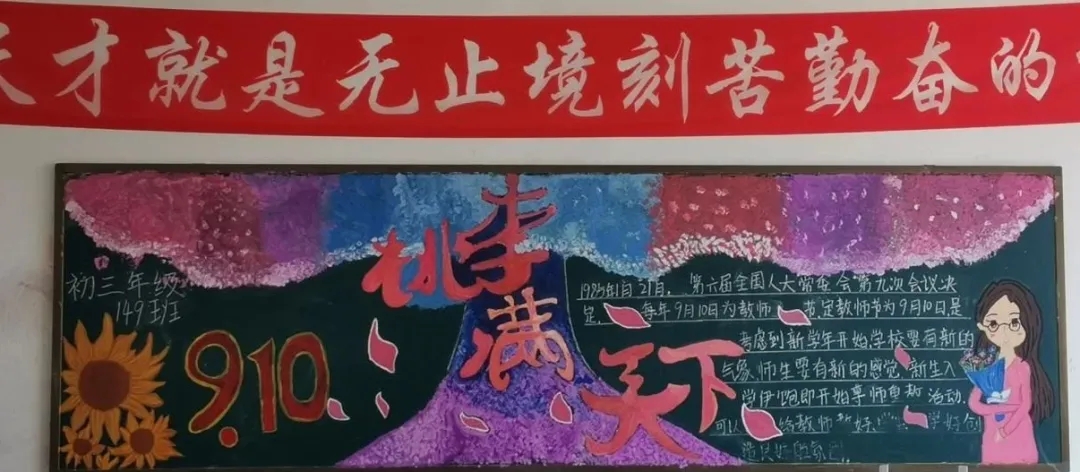 天才就是无止境刻苦勤奋的
桃李满天下
初三年级
149班
9.10
1985年1月21日，第六届全国人大常在会第九次会议决
定，每年9月10日为教师，若定教师节为9月10日是
考虑到新学年开始学校要有新的
气象，师生要有新的感觉，新生入
学伊始即开始享师重教活动，
可以给教师教好学好创
造良好的氛围